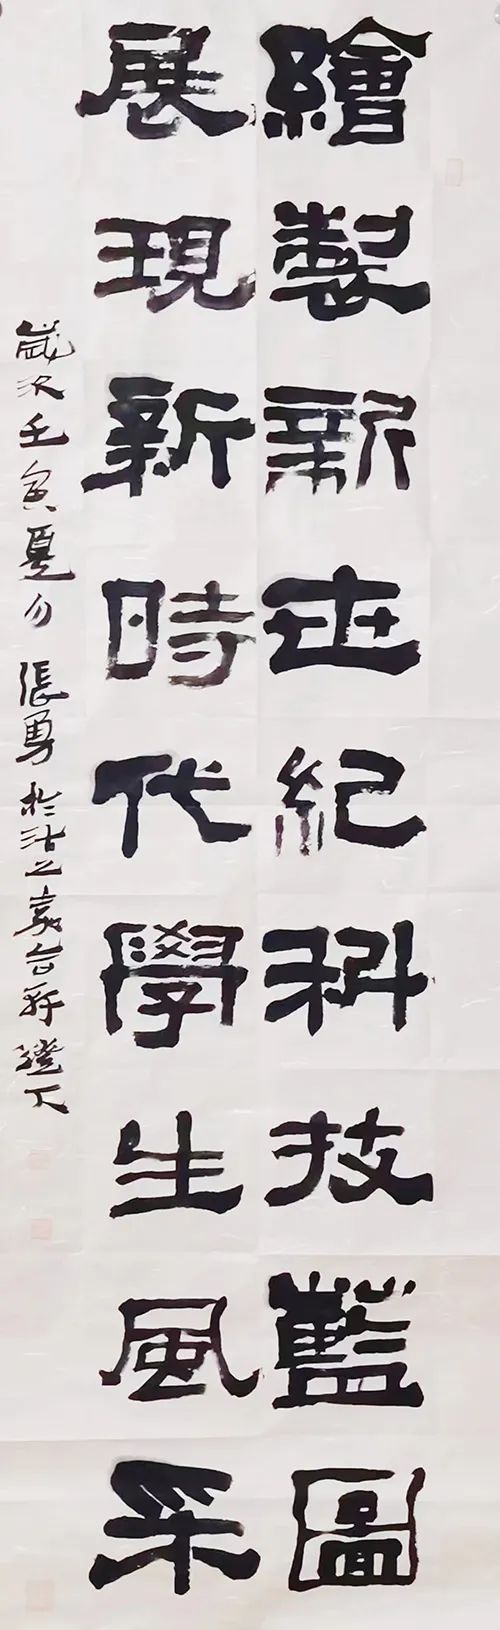 繪製新世紀科技藍圖
展現新時代學生風采
歲次壬寅夏月 張勇於沽上嘉台軒燈下